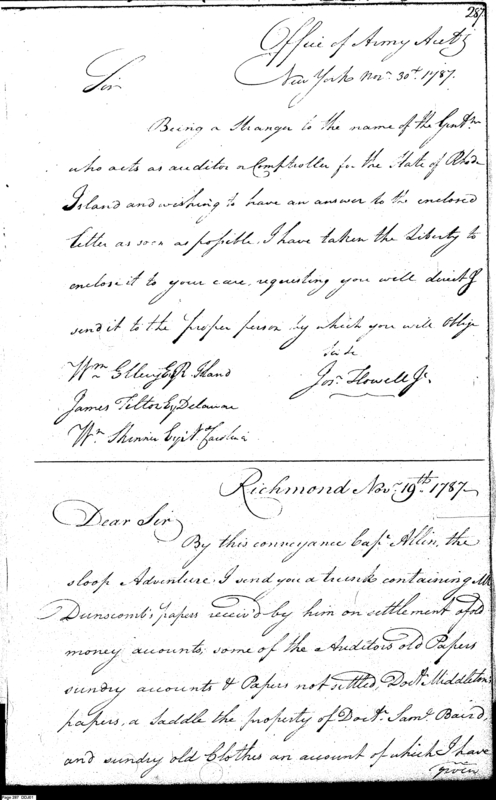 287
Office of Army Acctts
New York Nov. 30th. 1787.
Sir
Being a Stranger to the name of the Gentn
who acts as auditor or Comptroller for the State of Rhode
Island and wishing to have an answer to the enclosed
letter as soon as possible. I have taken the Liberty to
enclose it to your care, requesting you will direct &
send it to the proper person by which you will Oblige
Jos. Howell Jr.
Wm Ellery Esq R. Island
James Tilton Esq Delaware
Wm. Skinner Esq N. Carolina
Richmond Nov. 19th. 1787
Dear Sir
By this conveyance Capt. Allin, the
sloop Adventure. I send you a trunk containing Mr
Dunscomb's papers receiv'd by him on settlement of old
money accounts, some of the Auditors old Papers
sundry accounts & Papers not settled, Doct. Middleton's
papers, a Saddle the property of Doct. Saml. Baird,
and sundry old Clothes an account of which I have
given
Page 287